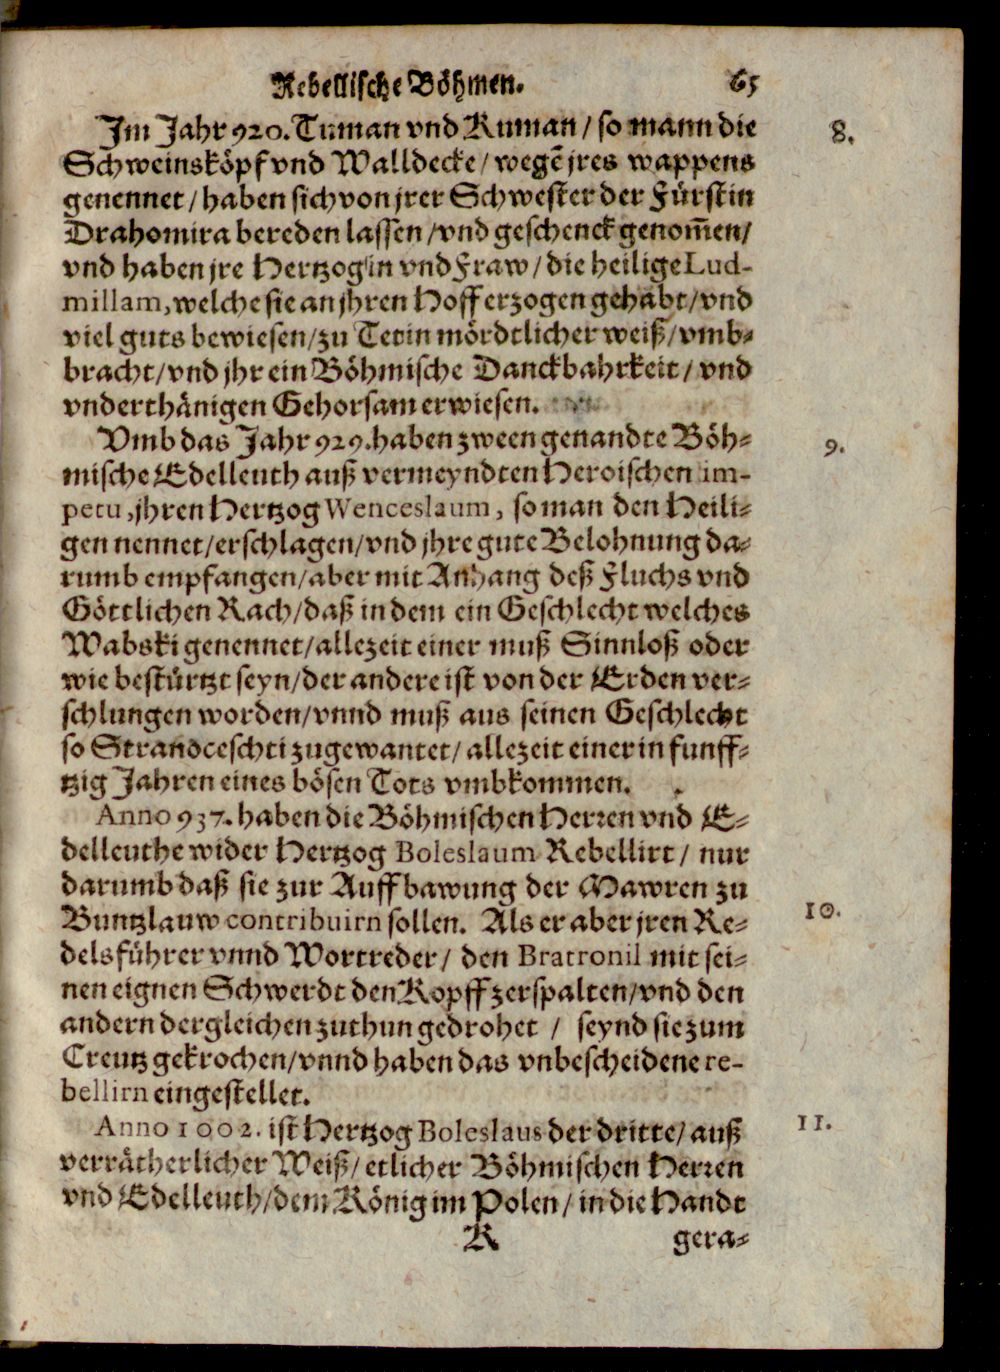 Rebellische Böhmen. 65
Im Jahr 920. Tuman vnd Kuman / so mann die 8.
Schweinsköpf vnd Walldecke / wegē jres wappens
genennet / haben sich von jrer Schwester der Fürstin
Drahomira bereden lassen / vnd geschenck genom̄en /
vnd haben jre Hertzogin vnd Fraw / die heilige Lud-
millam, welche sie an jhren Hoff erzogen gehabt / vnd
viel guts bewiesen / zu Tetin mördtlicher weiß / vmb-
bracht / vnd jhr ein Böhmische Danckbahrkeit / vnd
vnderthänigen Gehorsam erwiesen.
Vmb das Jahr 929. haben zween genandte Böh- 9.
mische Edelleuth auß vermeyndten Heroischen im-
petu, jhren Hertzog Wenceslaum, so man den Heili-
gen nennet / erschlagen / vnd jhre gute Belohnung da-
rumb empfangen / aber mit Anhang deß Fluchs vnd
Göttlichen Rach / daß in dem ein Geschlecht welches
Wabski genennet / allezeit einer muß Sinnloß oder
wie bestürtzt seyn / der andere ist von der Erden ver-
schlungen worden / vnnd muß aus seinen Geschlecht
so Strandceschti zugewantet / allezeit einer in funff-
tzig Jahren eines bösen Tots vmbkommen.
Anno 937. haben die Böhmischen Herren vnd E-
delleuthe wider Hertzog Boleslaum Rebellirt / nur
darumb daß sie zur Auffbawung der Mawren zu
Buntzlauw contribuirn sollen. Als er aber jren Re- 10.
delsführer vnnd Wortreder / den Bratronil mit sei-
nen eignen Schwerdt den Kopff zerspalten / vnd den
andern dergleichen zuthun gedrohet / seynd sie zum
Creutz gekrochen / vnnd haben das vnbescheidene re-
bellirn eingestellet.
Anno 1002. ist Hertzog Boleslaus der dritte / auß 11.
verrätherlicher Weiß / etlicher Böhmischen Herren
vnd Edelleuth / dem König im Polen / in die Handt
K gera-